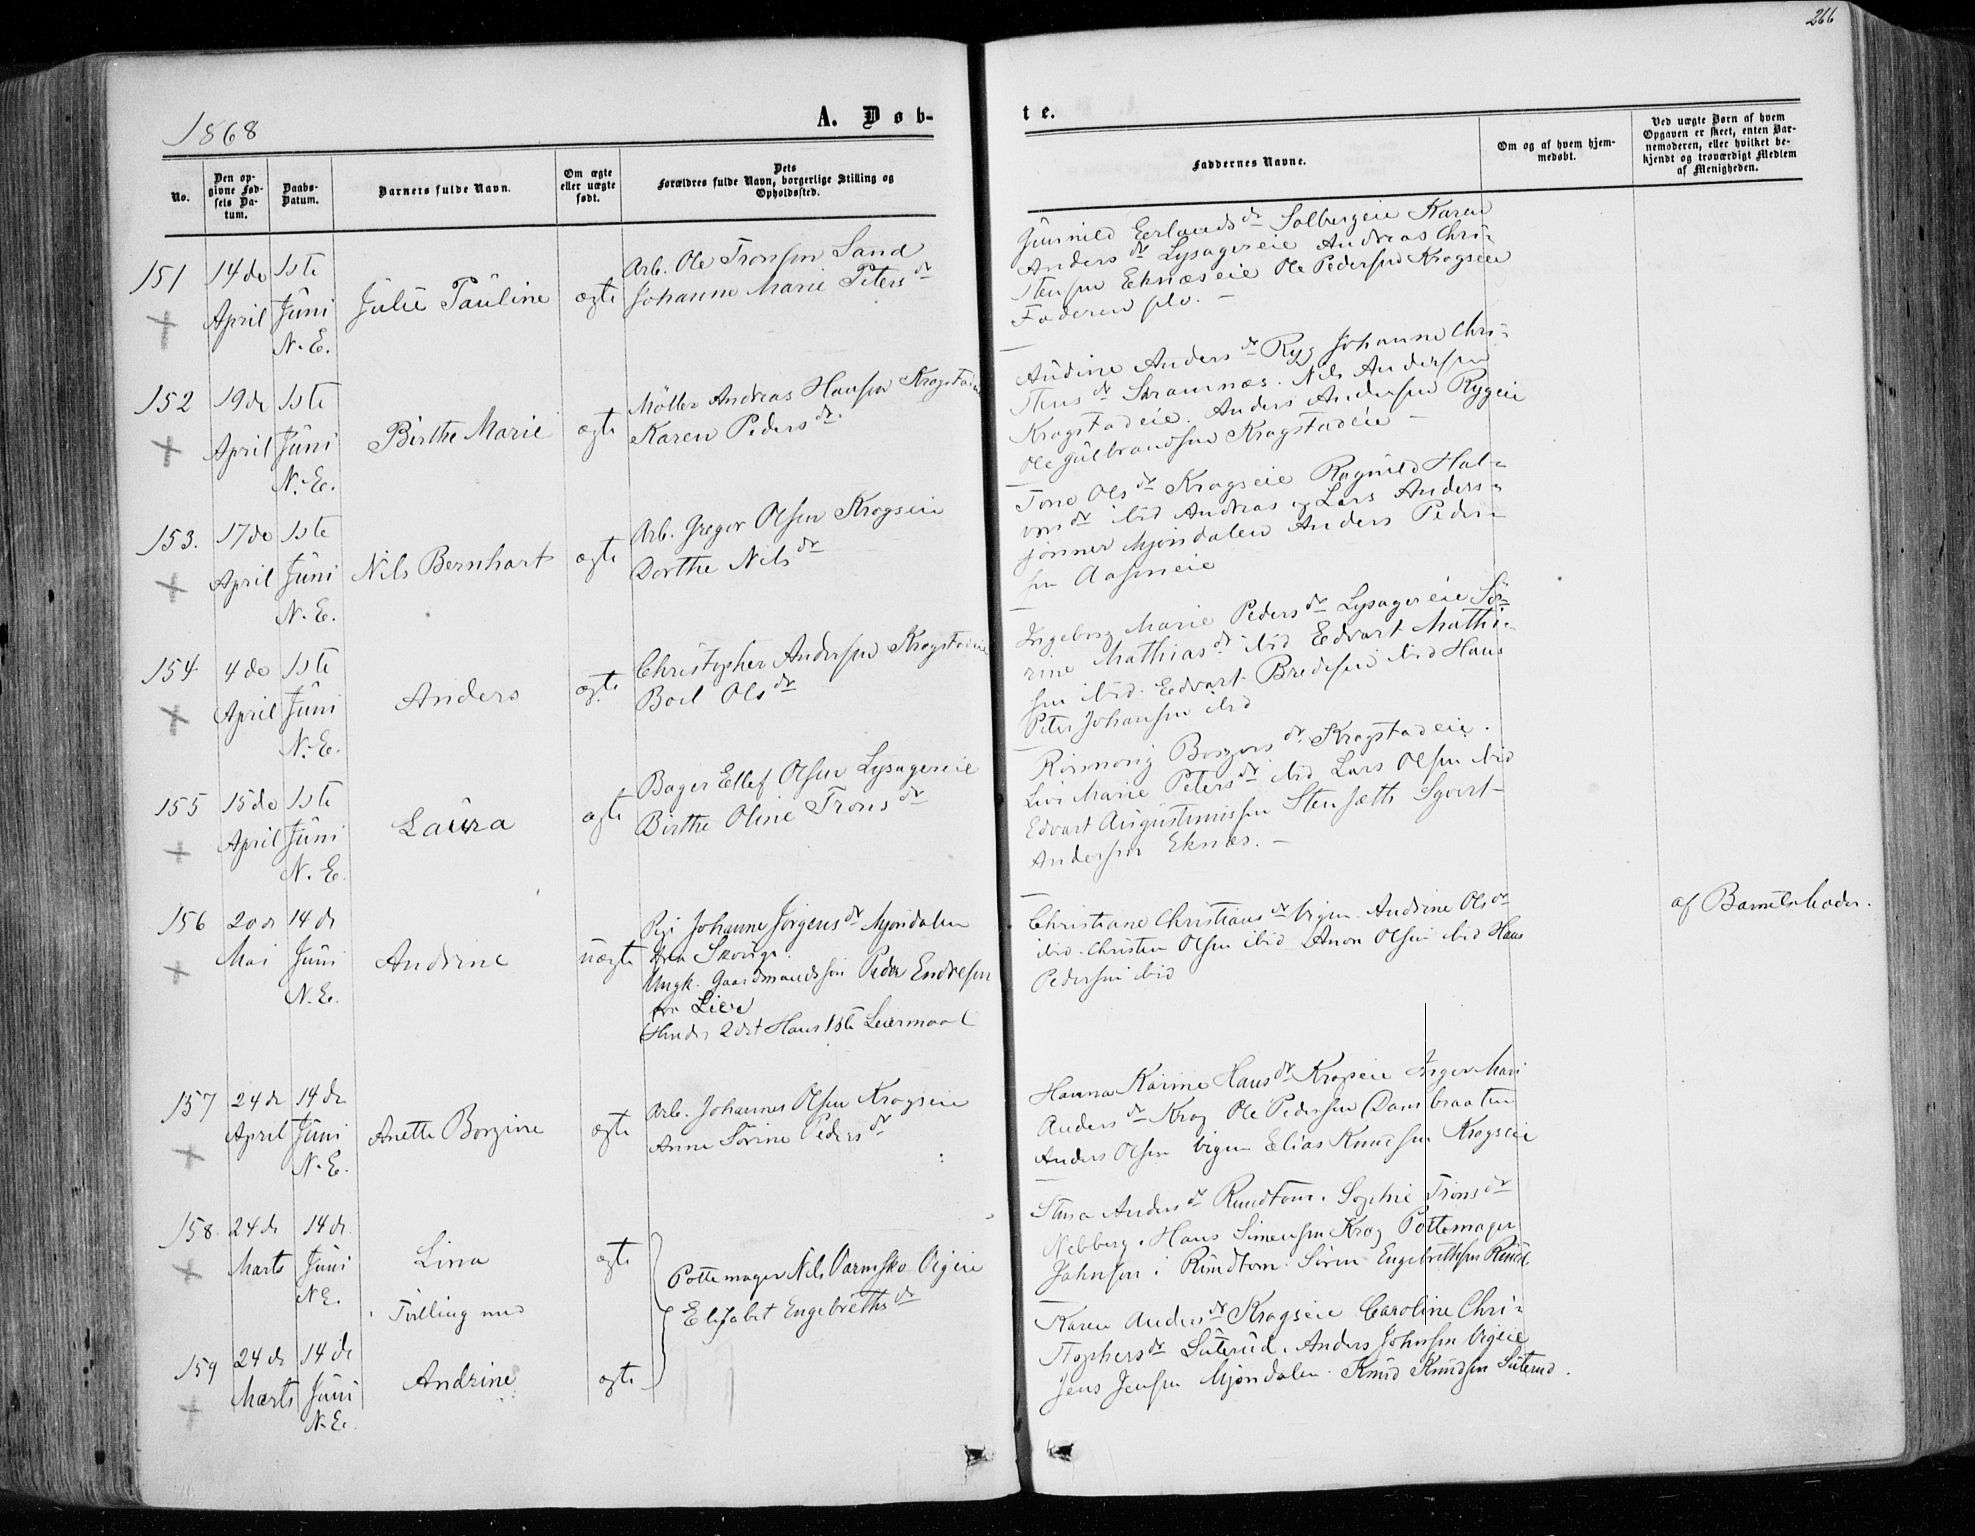 266
1868
A. Døb-
te.
No.
Den op-
givne Fød-
sels Da-
tum.
Daabs-
Datum.
Barnets fulde Navn.
Om ægte
eller uægte
født.
Dets
Forældres fulde Navn, borgerlige Stilling og
Opholdssted.
Faddernes Navne.
Om og af hvem hjem-
medøbt.
Ved uægte Børn af hvem
Opgaven er skeet, enten Bar-
nemoderen, eller hvilket be-
kjendt og troværdigt Medlem
af Menigheden.
151 14de April 1ste Juni N.E. Julie Pauline ægte
Arb. Ole Tronsen Sand
Johanne Marie Peters dr
Gunnild Eerlands dr Solbergeie Karen
Anders dr Lysagereie Andreas Chri-
stensen Eknæseie Ole Pedersen Krogseie
Faderen selv. –
152 19de April 1ste Juni N.E. Birthe Marie ægte
Møller Andreas Hansen Krogstadeie
Karen Peders dr.
Audine Anders dr Ryg Johanne Chri-
stens dr Stramnæs. Nils Andersen
Krogstadeie. Anders Andersen Rygeie
Ole Gulbrandsen Krogstadeie –
153. 17de April 1ste Juni N.E. Nils Bernhart ægte
Arb. Gregor Olsen Krogseie
Dorthe Nils dr
Tone Ols dr Krogseie Ragnild Hal-
vors dr ibid Andreas og Lars Anders-
sønner Mjøndalen Anders Peder-
sen Aaseneie
154 4de April 1ste Juni N.E. Anders ægte
Christopher Andersen Krogstadeie
Boel Ols dr
Ingeborg Marie Peders dr Lysagereie Sø-
rine Mathias dr ibid Eedvart Mathi-
sen ibid. Eedvart Bredesen ibid Hans
Peter Johansen ibid
155 15de April 1ste Juni N.E. Laura ægte
Bager Ellef Olsen Lysagereie
Birthe Oline Trons dr
Børgers dr Krogstadeie.
Livi Marie Peters dr ibid Lars Olsen ibid
Edvart Augustinussen Stensæth Syvert
Andersen Eknæs. –
156 20de Mai 14de Juni N.E. Andrine uægte
Pige Johanne Jørgens dr Mjøndalen
Ungk. Gaardmandssøn Peder Endresen
fra Lier
Hendes 2det Hans 1ste Leiermaal
Christiane Christians dr Vigen. Andrine Ols dr
ibid. Christen Olsen ibid Anon Olsen ibid Hans
Pedersen ibid
af Barnets Moder.
157 24de April 14de Juni N.E. Anette Borgine ægte
Arb. Johannes Olsen Krogseie
Anne Sørine Peders dr
Hanna Karine Hans dr Krogseie Inger Mari
Anders dr Krog Ole Pedersen Dambraaten
Anders Olsen Vigen Elias Knudsen Krogseie
158. 24de Marts 14de Juni N.E. Lina ægte
Tvilling med
Pottemager Nils Varmsko Vigeie
Elisabet Engebreths dr
Stina Anders dr Rundtom. Sophie Trons dr
Nebberg. Hans Simensen Krog Pottemager
Johnsen i Rundtom. Søren Engebrethsen Rund
159 24de Marts 14de Juni N.E. Andrine ægte
Karen Anders dr Krogseie Caroline Chri-
stophers dr Suterud. Anders Johnsen Vigeie
Jens Jensen Mjøndalen. Knud Knudsen Suterud.